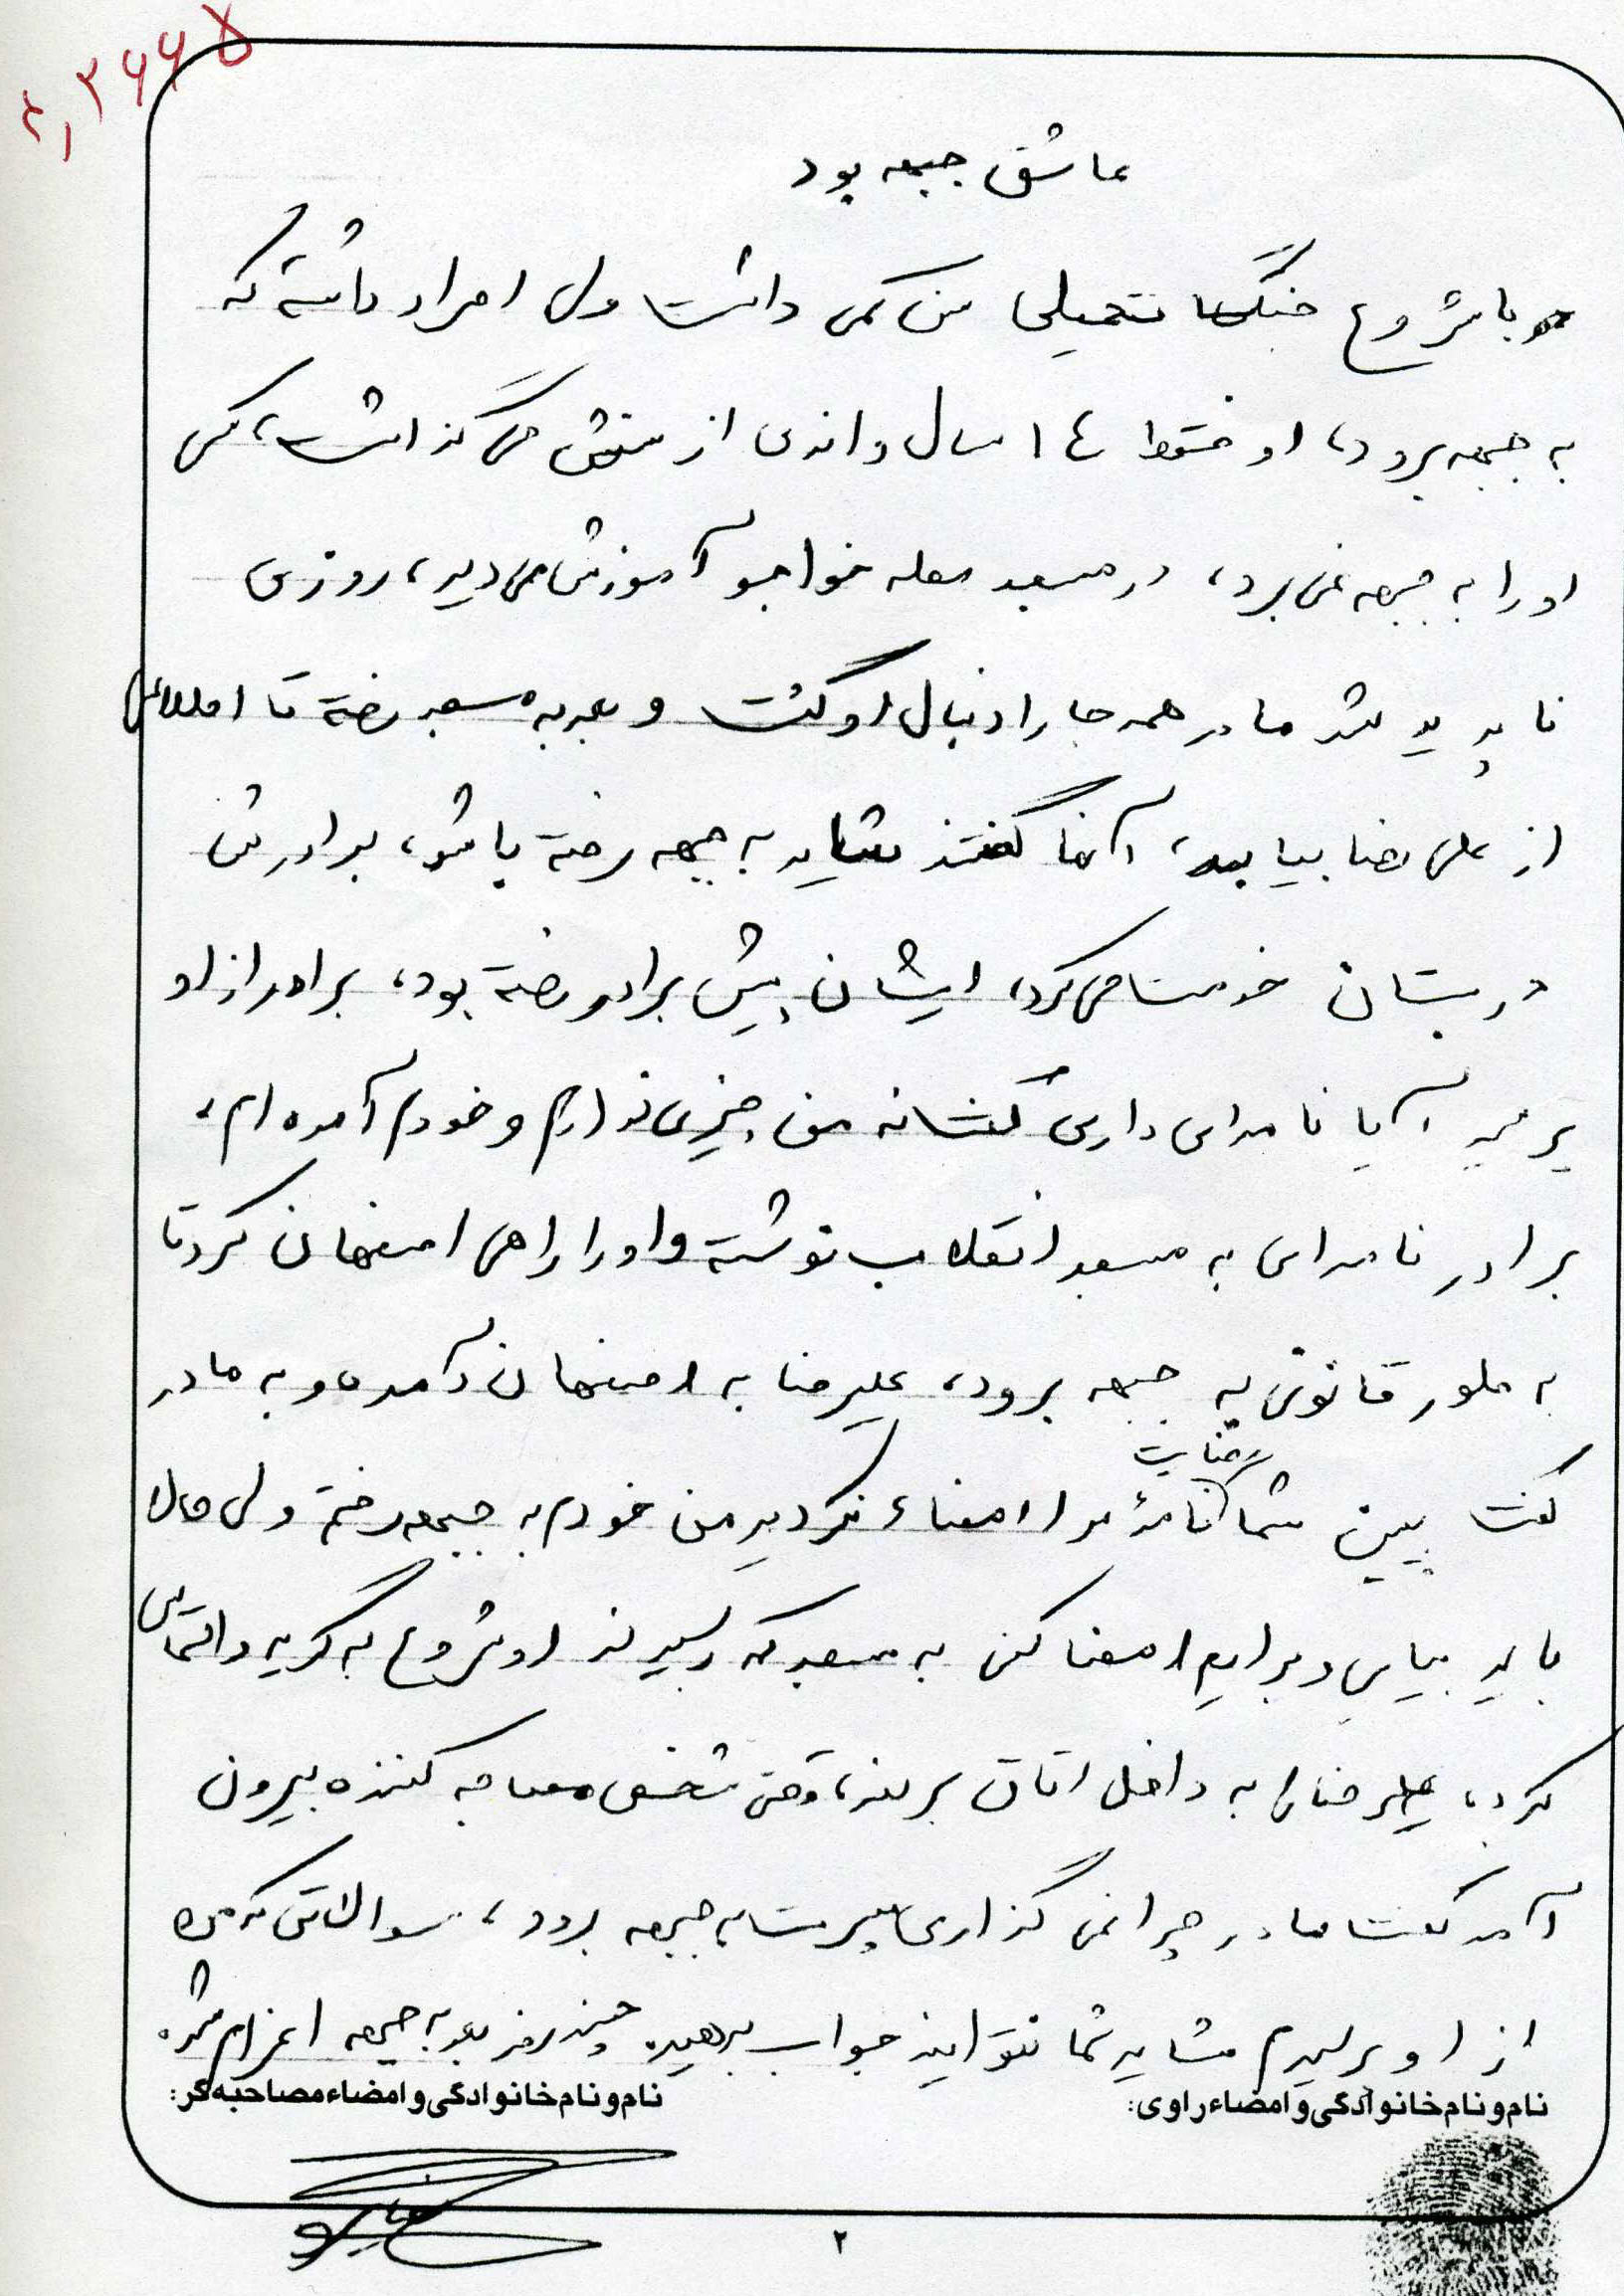 عاشق جبهه بود
با شروع جنگ تحمیلی سن کمی داشت ولی اصرار داشته که
به جبهه برود، او فقط ١٤ سال و اندی از سنش می گذاشت، کسی
او را به جبهه نمی برد، در مسجد محله خواجو آموزش می دید، روزی
ناپدید شد مادر همه جا را دنبال او گشت و بعد به مسجد رفته تا اطلاعی
از علی رضا بیابد، آنها گفتند شاید به جبهه رفته باشد، برادرش
در بستان خدمت می کرد، ایشان پیش برادر رفته بود، برادر از او
پرسید آیا نامه ای داری گفت نه من چیزی ندارم و خودم آمده ام،
برادر نامه ای به مسجد انقلاب نوشته و او را راهی اصفهان کرد تا
به طور قانونی به جبهه برود، علیرضا به اصفهان آمده و به مادر
گفت ببین شما رضایت نامۀ مرا امضاء نکردید من خودم به جبهه رفتم ولی حالا
باید بیایی و برایم امضا کنی به مسجد که رسیدند او شروع به گریه و التماس
کرد، علیرضا را به داخل اتاق بردند، وقتی شخص مصاحبه کننده بیرون
آمد گفت مادر چرا نمی گذاری پسرت به جبهه برود، سوالاتی که من
از او پرسیدم شاید شما نتوانید جواب بدهید، چند روز بعد به جبهه اعزام شد
نام و نام خانوادگی و امضاء راوی:
نام و نام خانوادگی و امضاء مصاحبه گر:
٢